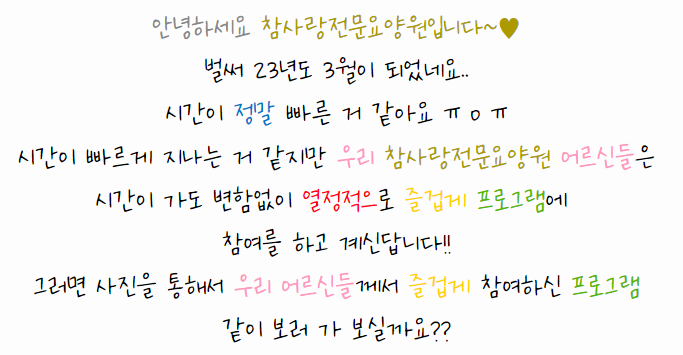 안녕하세요 참사랑전문요양원입니다~♥
벌써 23년도 3월이 되었네요..
시간이 정말 빠른 거 같아요 ㅠㅇㅠ
시간이 빠르게 지나는 거 같지만 우리 참사랑전문요양원 어르신들은
시간이 가도 변함없이 열정적으로 즐겁게 프로그램에
참여를 하고 계신답니다!!
그러면 사진을 통해서 우리 어르신들께서 즐겁게 참여하신 프로그램
같이 보러 가 보실까요??